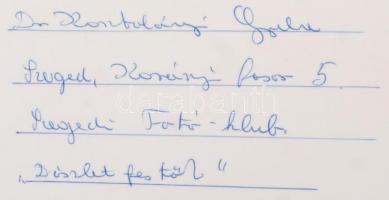 Dr Kosztolányi Gyula
Szeged, Korányi fasor 5.
Szegedi Fotó-klub.
„Díszlet festő”
darabanth